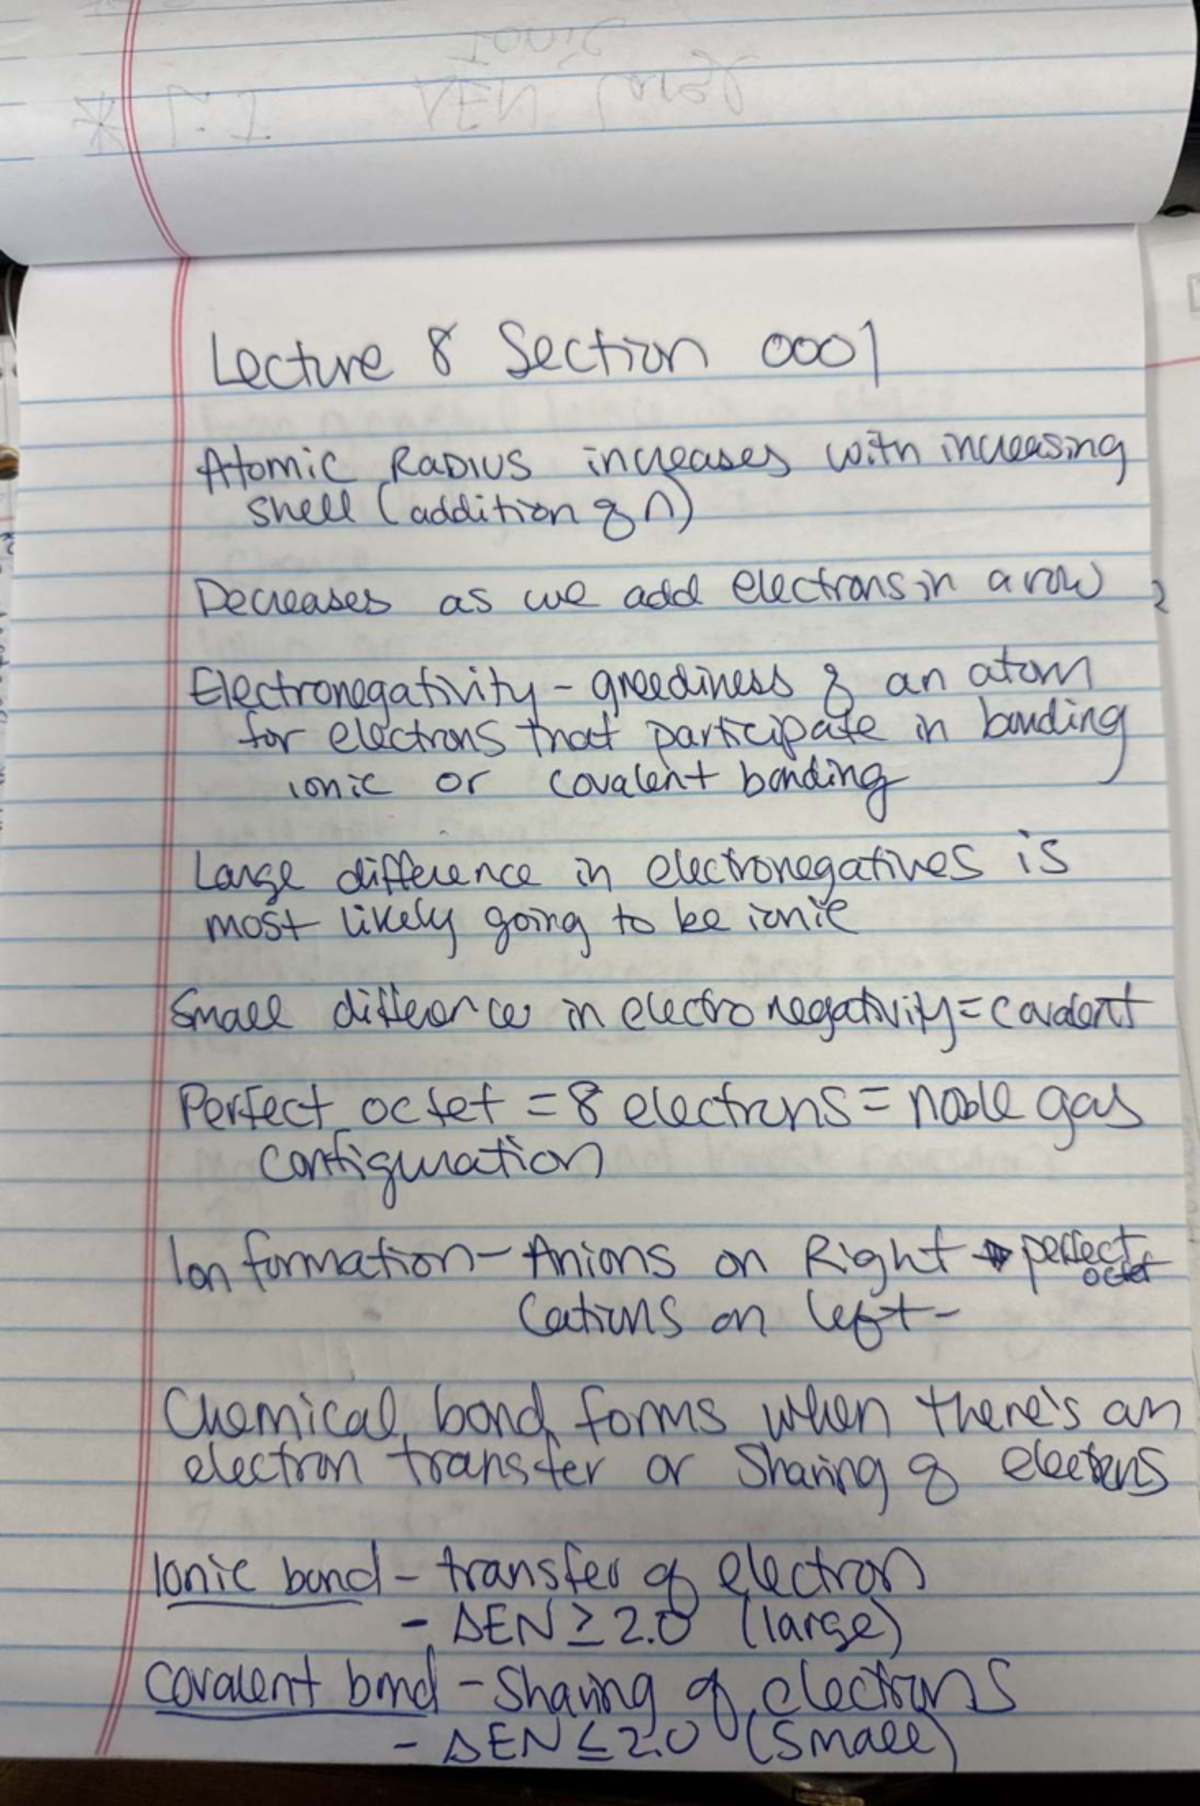 Ionic
* L.I ΔEN Large
Lecture 8 Section 0001
Atomic RADIUS increases with increasing
shell (addition of n)
Decreases as we add electrons in a row
Electronegativity - greediness of an atom
for electrons that participate in bonding
ionic or covalent bonding
Large difference in electronegatives is
most likely going to be ionic
Small difference in electronegativity = covalent
Perfect octet = 8 electrons = noble gas
configuration
Ion formation - Anions on Right → perfect octet
Cations on left -
Chemical bond forms when there's an
electron transfer or sharing of electrons
Ionic bond - transfer of electron
- ΔEN ≥ 2.0 (large)
Covalent bond - Sharing of electrons
- ΔEN ≤ 2.0 (small)